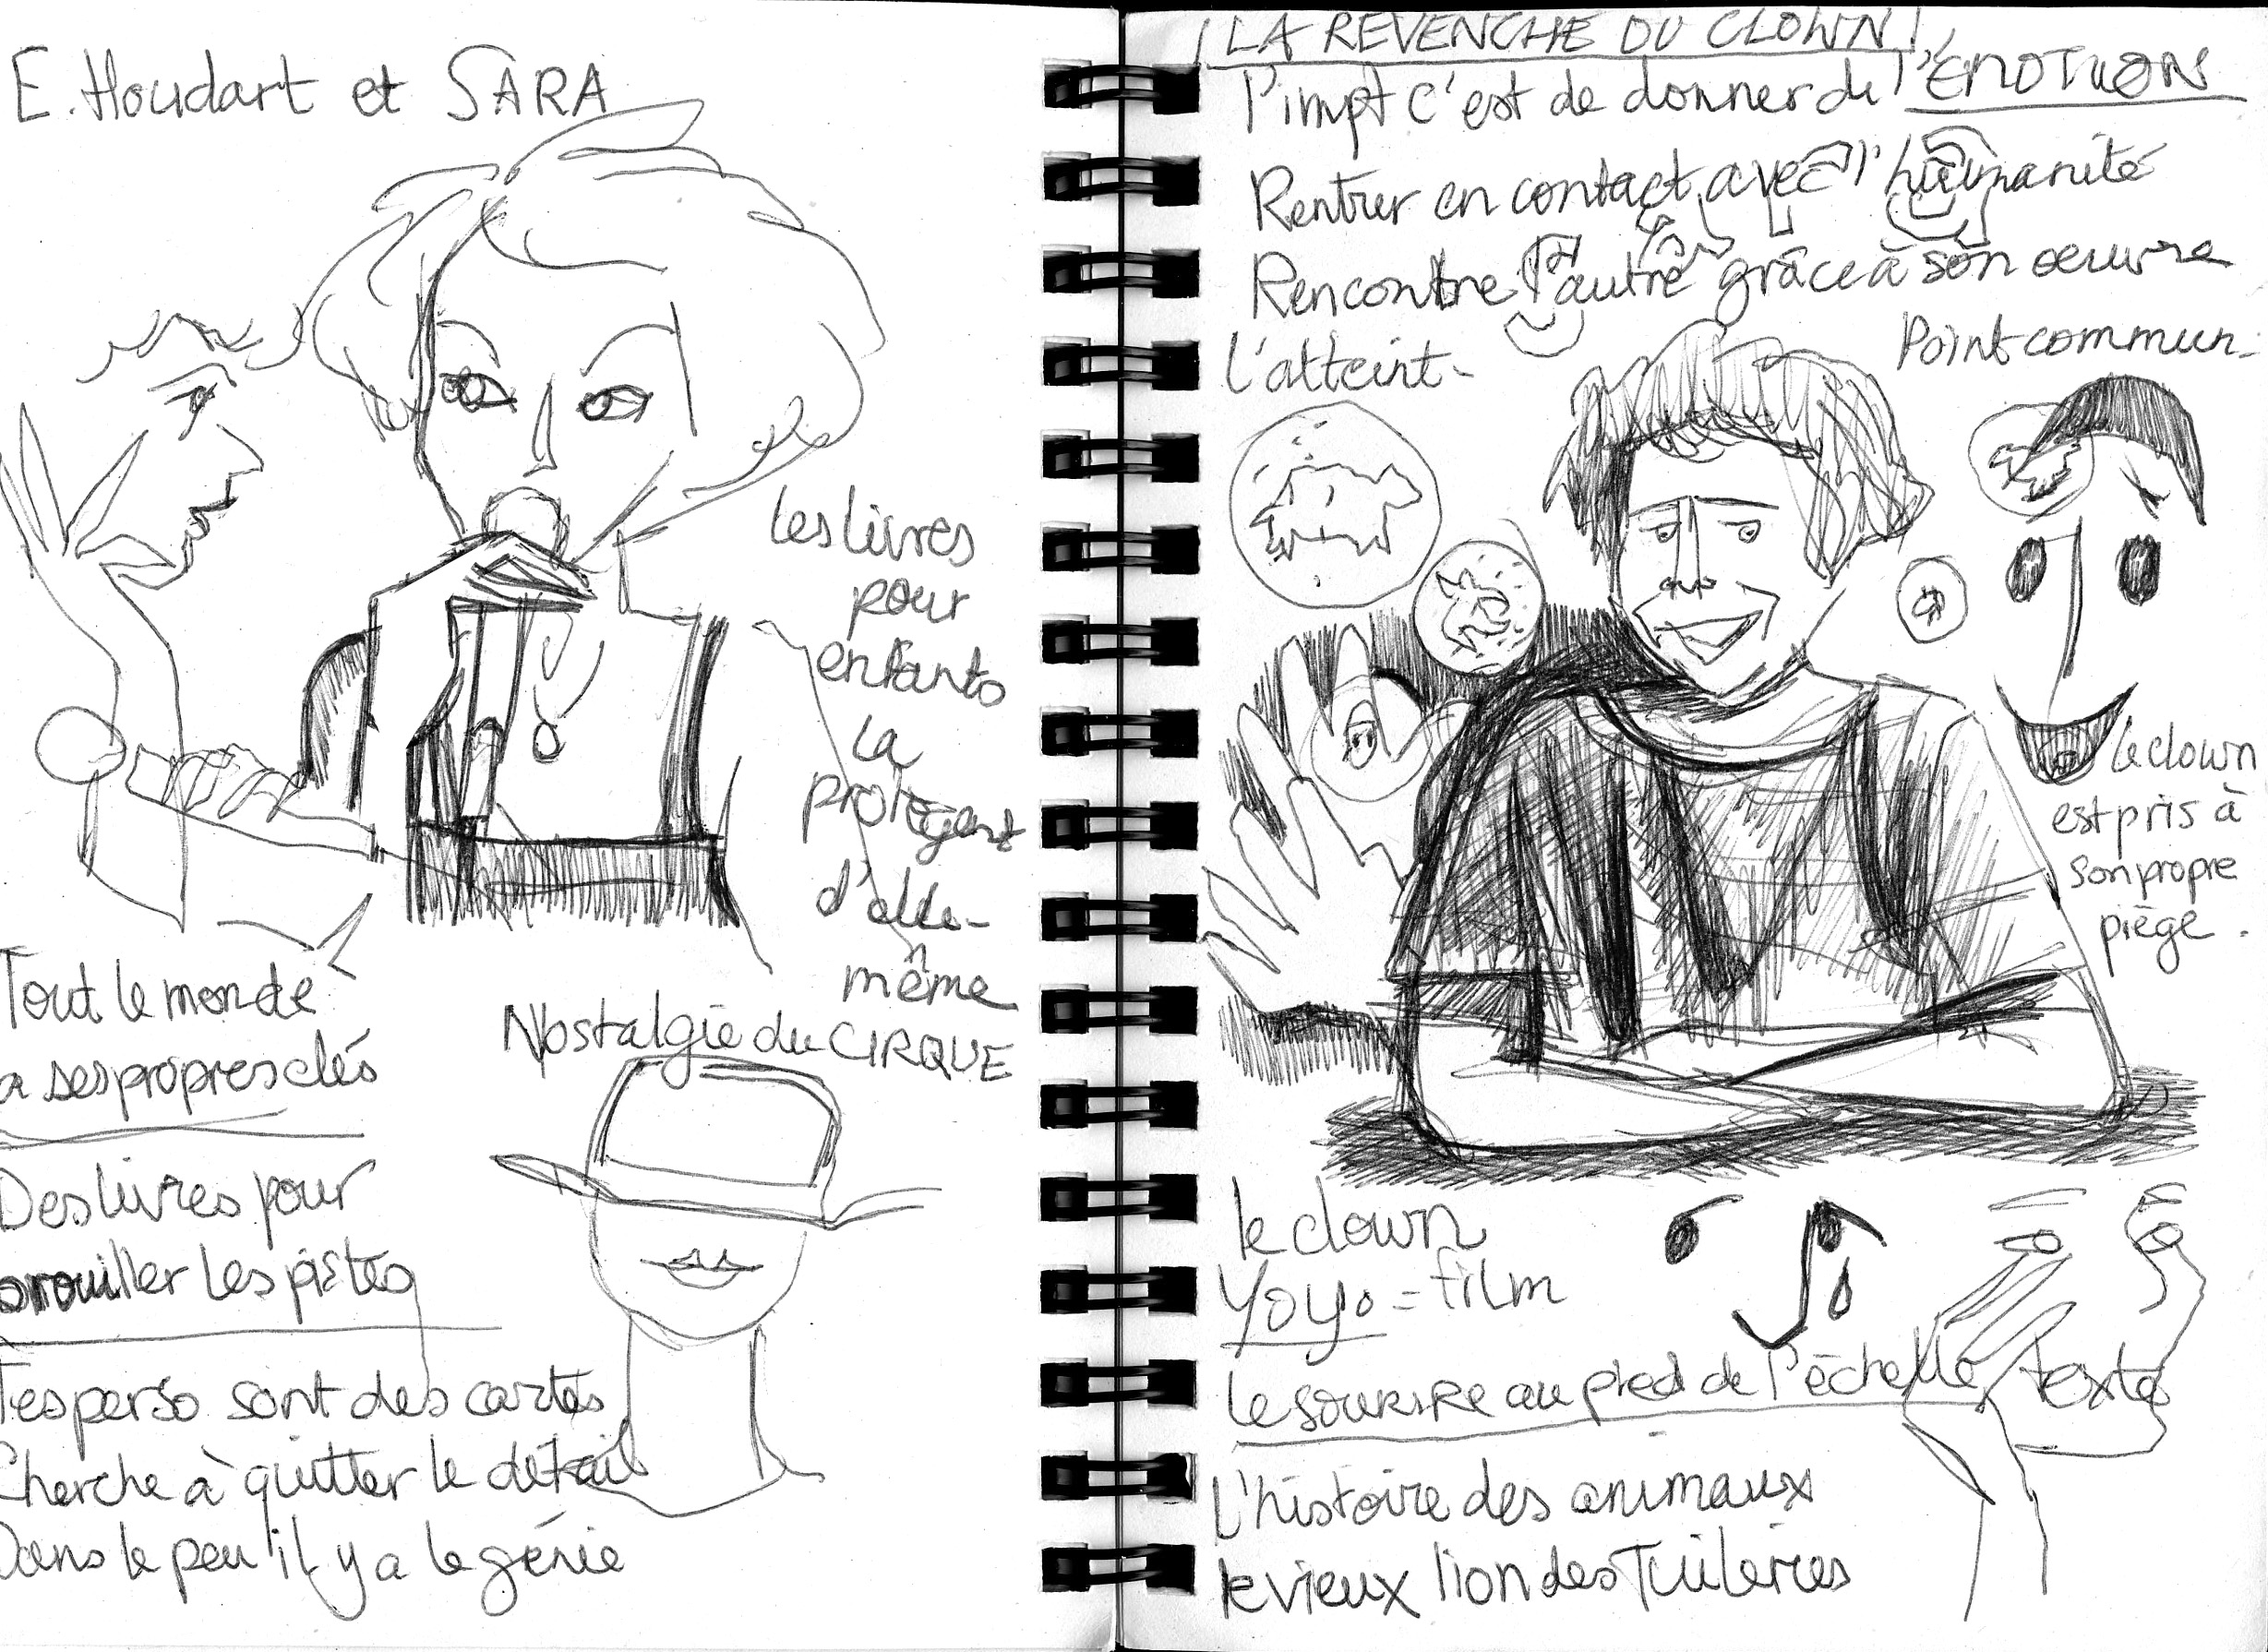 E. Houdart et SARA
les livres
pour
enfants
la
protègent
d'elle-
même
Tout le monde
a ses propres clés
Des livres pour
brouiller les pistes
Nostalgie du CIRQUE
Tes perso sont des cartes
Cherche à quitter le détail
Dans le peu il y a le génie
LA REVENCHE DU CLOWN!
l'impt c'est de donner de l'ÉMOTION
Rentrer en contact avec l'humanité
Rencontre l'autre grâce à son oeuvre
l'atteint-
Point commun.
le clown
est pris à
son propre
piège.
le clown
YOYO = film
le sourire au pied de l'échelle, texte
L'histoire des animaux
le vieux lion des Tuileries